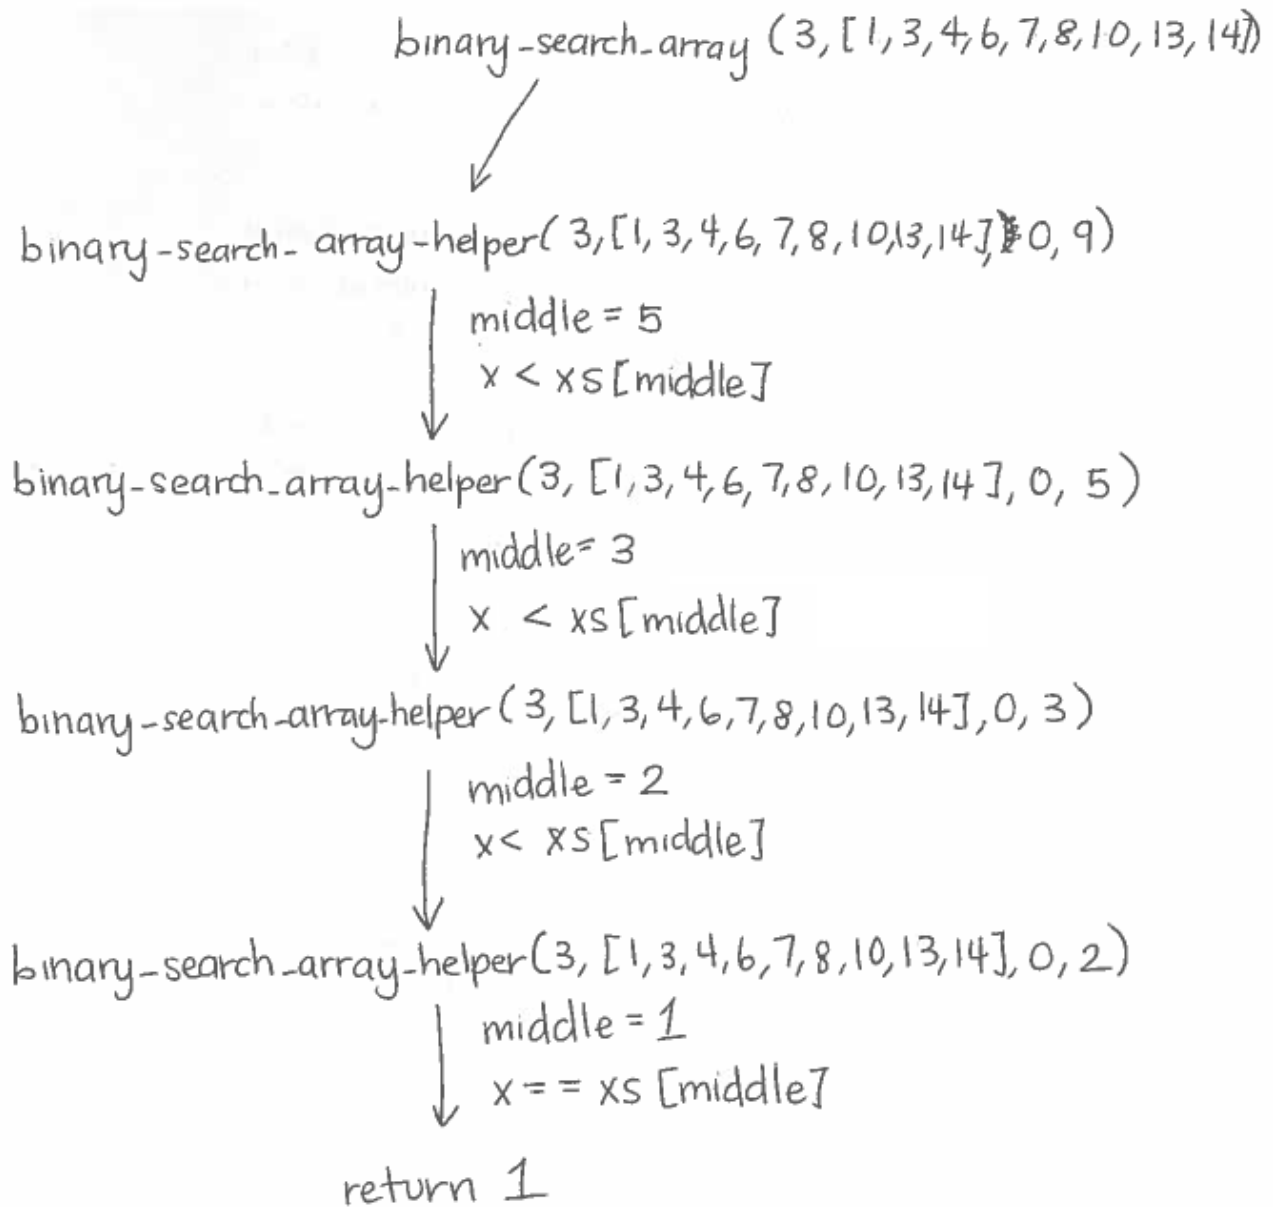 binary-search-array (3, [1, 3, 4, 6, 7, 8, 10, 13, 14])
binary-search-array-helper( 3, [1, 3, 4, 6, 7, 8, 10, 13, 14], 0, 9)
middle = 5
x < xs[middle]
binary-search-array-helper(3, [1, 3, 4, 6, 7, 8, 10, 13, 14], 0, 5)
middle = 3
x < xs[middle]
binary-search-array-helper(3, [1, 3, 4, 6, 7, 8, 10, 13, 14], 0, 3)
middle = 2
x < xs[middle]
binary-search-array-helper(3, [1, 3, 4, 6, 7, 8, 10, 13, 14], 0, 2)
middle = 1
x == xs [middle]
return 1